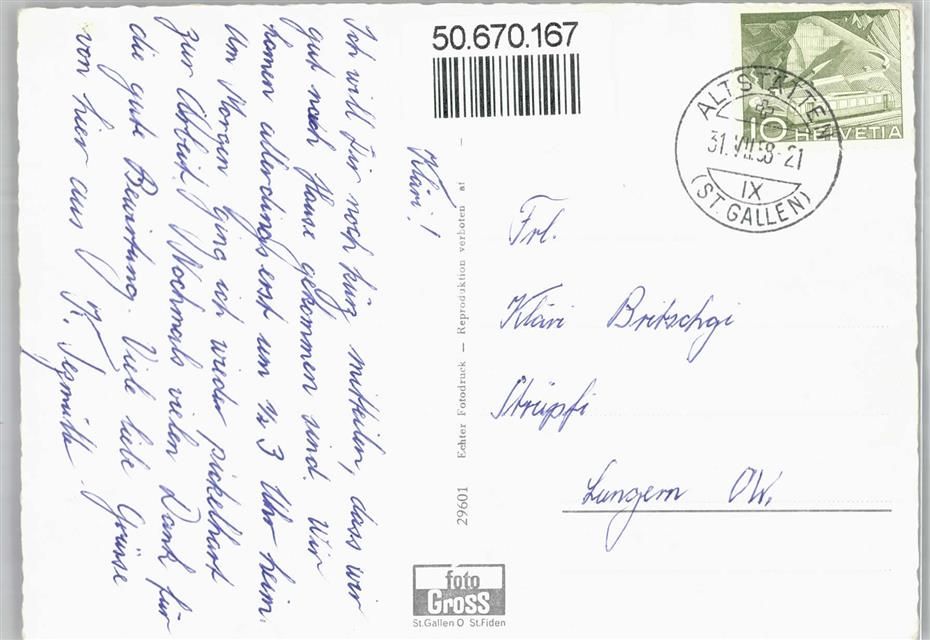 50.670.167
Kläri!
Ich will Dir noch kurz mitteilen, dass wir
gut nach Hause gekommen sind. Wir
kamen allerdings erst um ½ 3 Uhr heim.
Am Morgen ging ich wieder pickelhart
zur Arbeit. Nochmals vielen Dank für
die gute Bewirtung. Viele liebe Grüsse
von hier aus K. Segmüller.
29601 Echter Fotodruck — Reproduktion verboten at —
foto
Gross
St.Gallen O St.Fiden
HELVETIA
10
ALTSTÄTTEN
31.VII.58-21
IX
(ST. GALLEN)
Frl.
Kläri Britschgi
Strüpfi
Lungern OW.